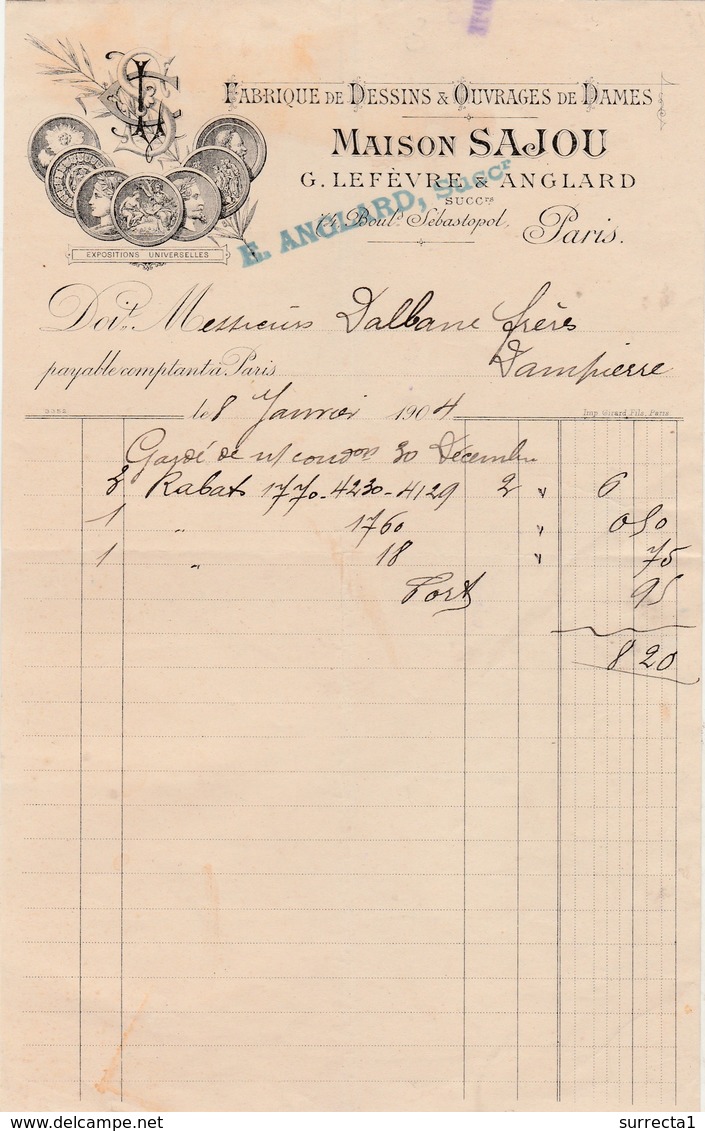 FABRIQUE DE DESSINS & OUVRAGES DE DAMES
MAISON SAJOU
G. LEFÈVRE & ANGLARD
SUCCrs
E. ANGLARD, Succr
74, Boulд. Sébastopol, Paris.
EXPOSITIONS UNIVERSELLES
Doit Messieurs Dalbane frères
payable comptant à Paris Dampierre
9352 le 8 Janvier 1904 Imp Girard Fils, Paris
Gardé de n/ 30 Décembre
3 Rabats 1770-4230-4129 2 " 6
1 " 1760 " 0 50
1 " 18 " 75
Port 95
8 20
surrecta1